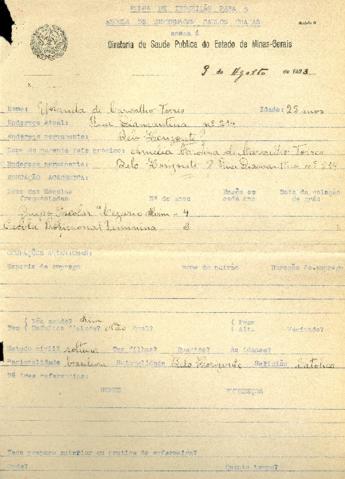 FICHA DE INSCRIÇÃO PARA A
ESCOLA DE ENFERMEIRAS CARLOS CHAGAS
annexa á
Directoria de Saude Publica do Estado de Minas-Geraes
9 de Agosto de 1933
Nome: de Carvalho Torres Idade: 25 anos
Endereço actual: Rua Diamantina nº 214
Endereço permanente: Belo Horizonte
Nome do parente mais proximo: Amelia Carolina de Carvalho Torres
Endereço permanente: Belo Horizonte Rua Diamantina nº 214
EDUCAÇÃO ACADEMICA:
Nome das Escolas Mezes em Data da
frequentadas Nº de annos cada anno de gráu
Grupo Escolar "Cesario Alvim" - 4
Escola Profissional Feminina 3
Especie de emprego Nome do patrão Duração do emprego
Bôa saude? Sim
Tem Defeitos fisicos? Não Qual? Vacinada?
Estado civil solteira Tem filhos? Quantos? As idades?
Nacionalidade brasileira Naturalidade Belo Horizonte Religião Catolica
Dê tres referencias:
NOMES ENDEREÇOS
Tem preparo anterior ou pratica de enfermeira?
Onde? Quanto tempo?